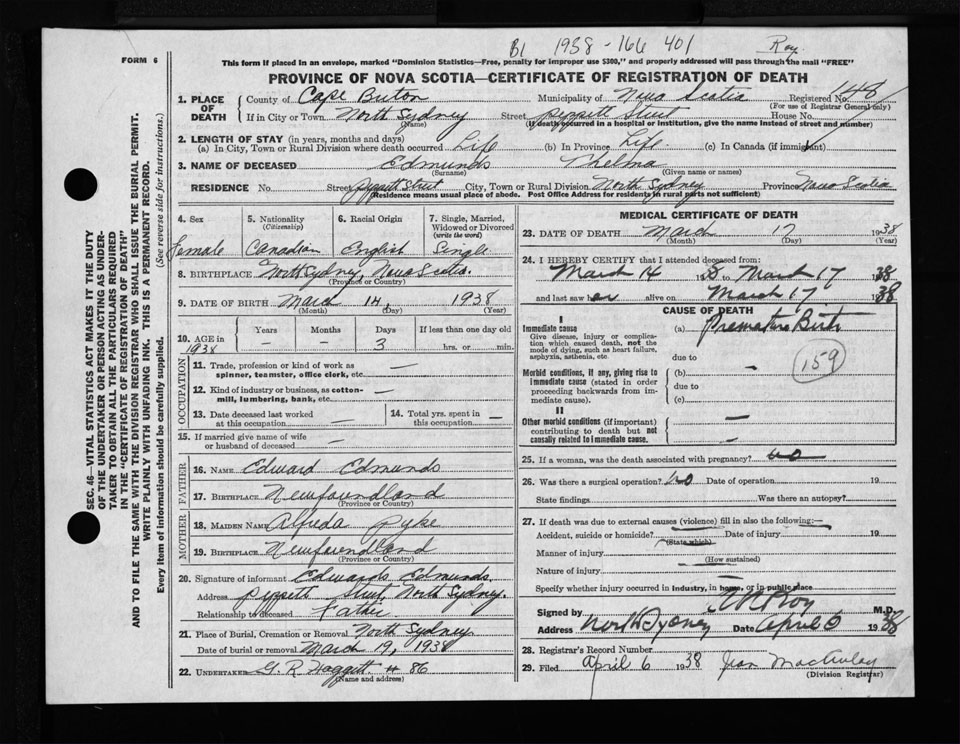 FORM 6
B1 1938-166 401
Roy
This form if placed in an envelope, marked "Dominion Statistics—Free, penalty for improper use $300," and properly addressed will pass through the mail "FREE"
PROVINCE OF NOVA SCOTIA—CERTIFICATE OF REGISTRATION OF DEATH
1. PLACE OF DEATH
County of Cape Breton Municipality of Nova Scotia Registered No. 148
(For use of Registrar General only)
If in City or Town North Sydney Street Pippett Street House No.
(Name) (If death occurred in a hospital or institution, give the name instead of street and number)
2. LENGTH OF STAY (in years, months and days)
(a) In City, Town or Rural Division where death occurred Life (b) In Province Life (c) In Canada (if immigrant)
3. NAME OF DECEASED Edmunds Thelma
(Surname) (Given name or names)
RESIDENCE No. Street Pippett Street City, Town or Rural Division North Sydney Province Nova Scotia
(Residence means usual place of abode. Post Office Address for residents in rural parts not sufficient)
4. Sex
Female
5. Nationality
(Citizenship)
Canadian
6. Racial Origin
English
7. Single, Married,
Widowed or Divorced
(write the word)
Single
8. BIRTHPLACE North Sydney, Nova Scotia.
(Province or Country)
9. DATE OF BIRTH March 14, 1938
(Month) (Day) (Year)
10. AGE in
1938
Years Months Days If less than one day old
— — 3 hrs. or min.
OCCUPATION
11. Trade, profession or kind of work as
spinner, teamster, office clerk, etc. —
12. Kind of industry or business, as cotton-
mill, lumbering, bank, etc. —
13. Date deceased last worked
at this occupation —
14. Total yrs. spent in
this occupation —
15. If married give name of wife
or husband of deceased —
FATHER
16. NAME Edward Edmunds
17. BIRTHPLACE Newfoundland
(Province or Country)
MOTHER
18. MAIDEN NAME Alfreda Pyke
19. BIRTHPLACE Newfoundland
(Province or Country)
20. Signature of informant Edwards Edmunds.
Address Pippett Street, North Sydney.
Relationship to deceased Father
21. Place of Burial, Cremation or Removal North Sydney
Date of burial or removal March 19, 1938
22. UNDERTAKER G. R. # 86
(Name and address)
MEDICAL CERTIFICATE OF DEATH
23. DATE OF DEATH March 17 1938
(Month) (Day) (Year)
24. I HEREBY CERTIFY that I attended deceased from:
March 14 38 to March 17 1938
and last saw her alive on March 17 1938
CAUSE OF DEATH
I
Immediate cause
Give disease, injury or complica-
tion which caused death, not the
mode of dying, such as heart failure,
asphyxia, asthenia, etc.
(a) Premature Birth
due to
Morbid conditions, if any, giving rise to
immediate cause (stated in order
proceeding backwards from im-
mediate cause).
(b) —
due to
(c)
159
II
Other morbid conditions (if important)
contributing to death but not
causally related to immediate cause.
—
25. If a woman, was the death associated with pregnancy? no
26. Was there a surgical operation? no Date of operation 19
State findings Was there an autopsy?
27. If death was due to external causes (violence) fill in also the following:—
Accident, suicide or homicide? Date of injury 19
(State which)
Manner of injury
(How sustained)
Nature of injury
Specify whether injury occurred in industry, in home, or in public place
Signed by Roy M.D.
Address North Sydney Date April 6 1938
28. Registrar's Record Number
29. Filed April 6 1938 Jean MacAulay
(Division Registrar)
SEC. 46—VITAL STATISTICS ACT MAKES IT THE DUTY
OF THE UNDERTAKER OR PERSON ACTING AS UNDER-
TAKER TO OBTAIN ALL THE PARTICULARS REQUIRED
IN THE "CERTIFICATE OF DEATH"
AND TO FILE THE SAME WITH THE DIVISION REGISTRAR WHO SHALL ISSUE THE BURIAL PERMIT.
WRITE PLAINLY WITH UNFADING INK. THIS IS A PERMANENT RECORD.
Every item of information should be carefully supplied. (See reverse side for instructions.)